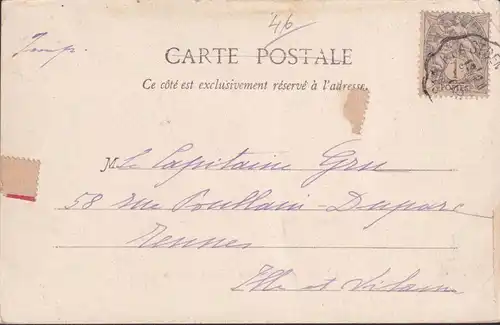 46
Imp.
CARTE POSTALE
Ce côté est exclusivement réservé à l'adresse.
M. Le Capitaine Gru
58 Rue Poullain-Duparc
Rennes
Ille et Vilaine